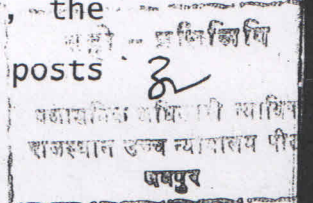 , the
सही - प्रतिलिपि
posts
प्रशासनिक अधिकारी न्यायिक
राजस्थान उच्च न्यायालय पीठ
जयपुर